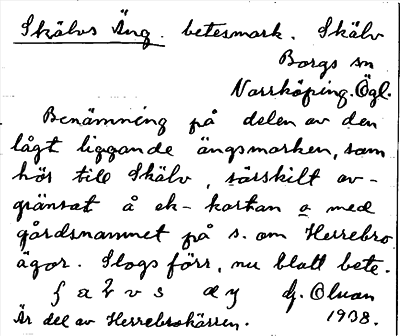 Skälvs Äng. betesmark. Skälv
Borgs sn
Norrköping. Ögl.
Benämning på delen av den
lågt liggande ängsmarken, som
hör till Skälv, särskilt av-
gränsat å ek-kartan a med
gårdsnamnet på s. om Herrebro
ägor. Slogs förr, nu blott bete.
1938.
Är del av Herrebrokärren.